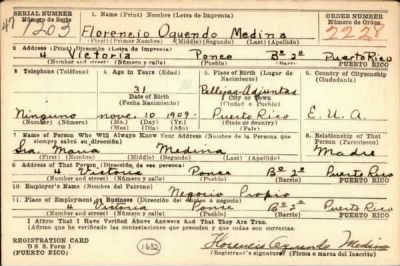 SERIAL NUMBER 1. Name (Print) Nombre (Letra de Imprenta) ORDER NUMBER
Número de Serie Número de Orden
47 1203 Florencio Oquendo Medina 2224
(First) (Primer Nombre) (Middle) (Segundo) (Last) (Apellido)
2. Address (Print) Dirección (Letra de Imprenta)
4 Victoria Ponce Bº 2º Puerto Rico
(Number and street) (Número y calle) (Town) (Pueblo) (Barrio) PUERTO RICO
3. Telephone (Teléfono) 4. Age in Years (Edad) 5. Place of Birth (Lugar de Nacimiento) 6. Country of Citizenship (Ciudadanía)
31 Pellejas-Adjuntas
Date of Birth (Fecha Nacimiento) City or Town (Ciudad o Pueblo)
Ninguno nove. 10 1909 Puerto Rico E. U. A.
(No.) (Mo.) (Mes) (Day) (Día) (Yr.) (Año) (State or country) (Estado o país)
7. Name of Person Who Will Always Know Your Address (Nombre de la Persona que siempre sabrá su dirección) 8. Relationship of That Person (Parentesco)
Sra. Maria Medina Madre
(First) (Middle) (Segundo) (Last) (Apellido)
9. Address of That Person (Dirección de esa persona)
4 Victoria Ponce Bº 2º Puerto Rico
(Number and street) (Número y calle) (Town) (Pueblo) (Barrio) PUERTO RICO
10. Employer's Name (Nombre del Patrono)
Negocio Propio
11. Place of Employment or Business (Dirección del trabajo)
4 Victoria Ponce Bº 2º Puerto Rico
(Number and street) (Número y calle) (Town) (Pueblo) (Barrio) PUERTO RICO
I Affirm That I Have Verified Above Answers And That They are True.
Afirmo que he verificado las contestaciones que preceden y que todas son correctas.
REGISTRATION CARD
D S S. Form 1
(PUERTO RICO)
Florencio Oquendo Medina
(Registrant's signature) (Firma o marca del Inscrito)